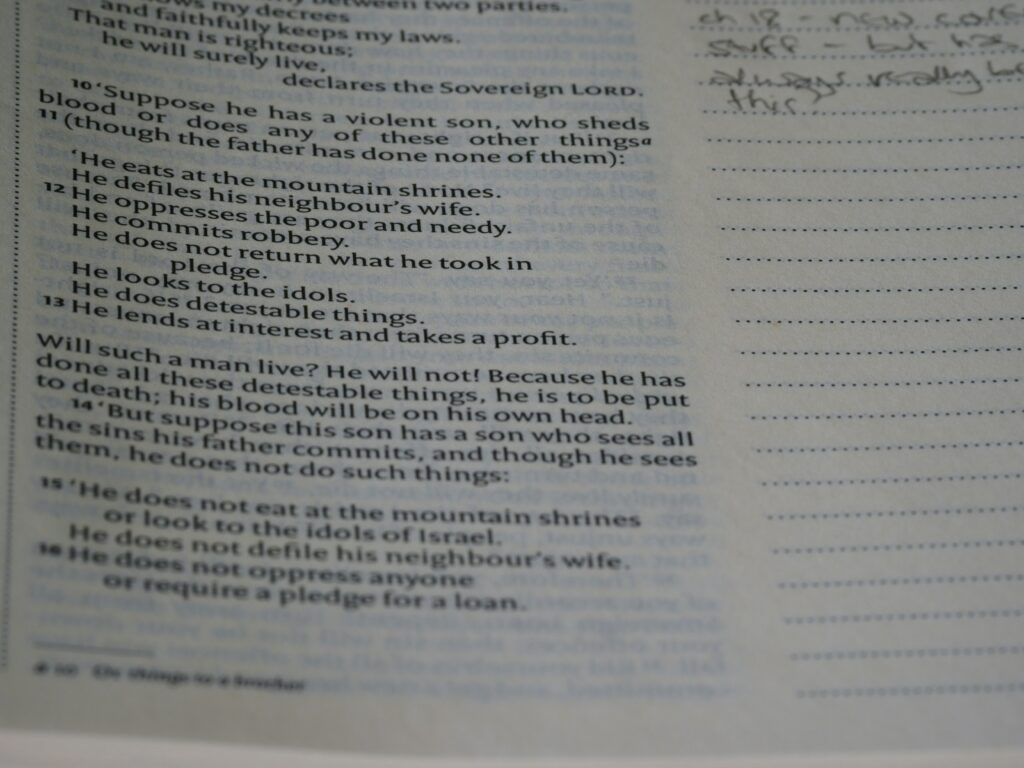 between two parties.
my decrees
and faithfully keeps my laws.
That man is righteous;
he will surely live,
declares the Sovereign LORD.
10 ‘Suppose he has a violent son, who sheds
blood or does any of these other thingsa
11 (though the father has done none of them):
‘He eats at the mountain shrines.
He defiles his neighbour’s wife.
12 He oppresses the poor and needy.
He commits robbery.
He does not return what he took in
pledge.
He looks to the idols.
He does detestable things.
13 He lends at interest and takes a profit.
Will such a man live? He will not! Because he has
done all these detestable things, he is to be put
to death; his blood will be on his own head.
14 ‘But suppose this son has a son who sees all
the sins his father commits, and though he sees
them, he does not do such things:
15 ‘He does not eat at the mountain shrines
or look to the idols of Israel.
He does not defile his neighbour’s wife.
16 He does not oppress anyone
or require a pledge for a loan.
a 10 Or things to a brother
ch 18 - new
stuff - but has
always really
this?